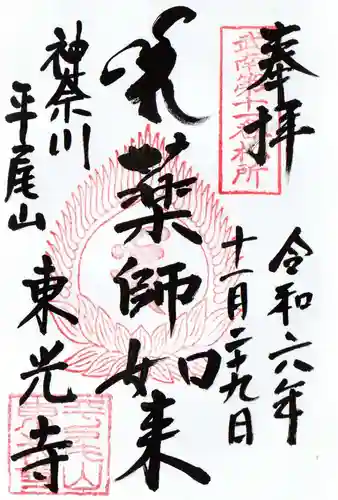 奉拝
武相第十一番札所
令和六年
十一月二十九日
薬師如来
神奈川
平尾山
東光寺